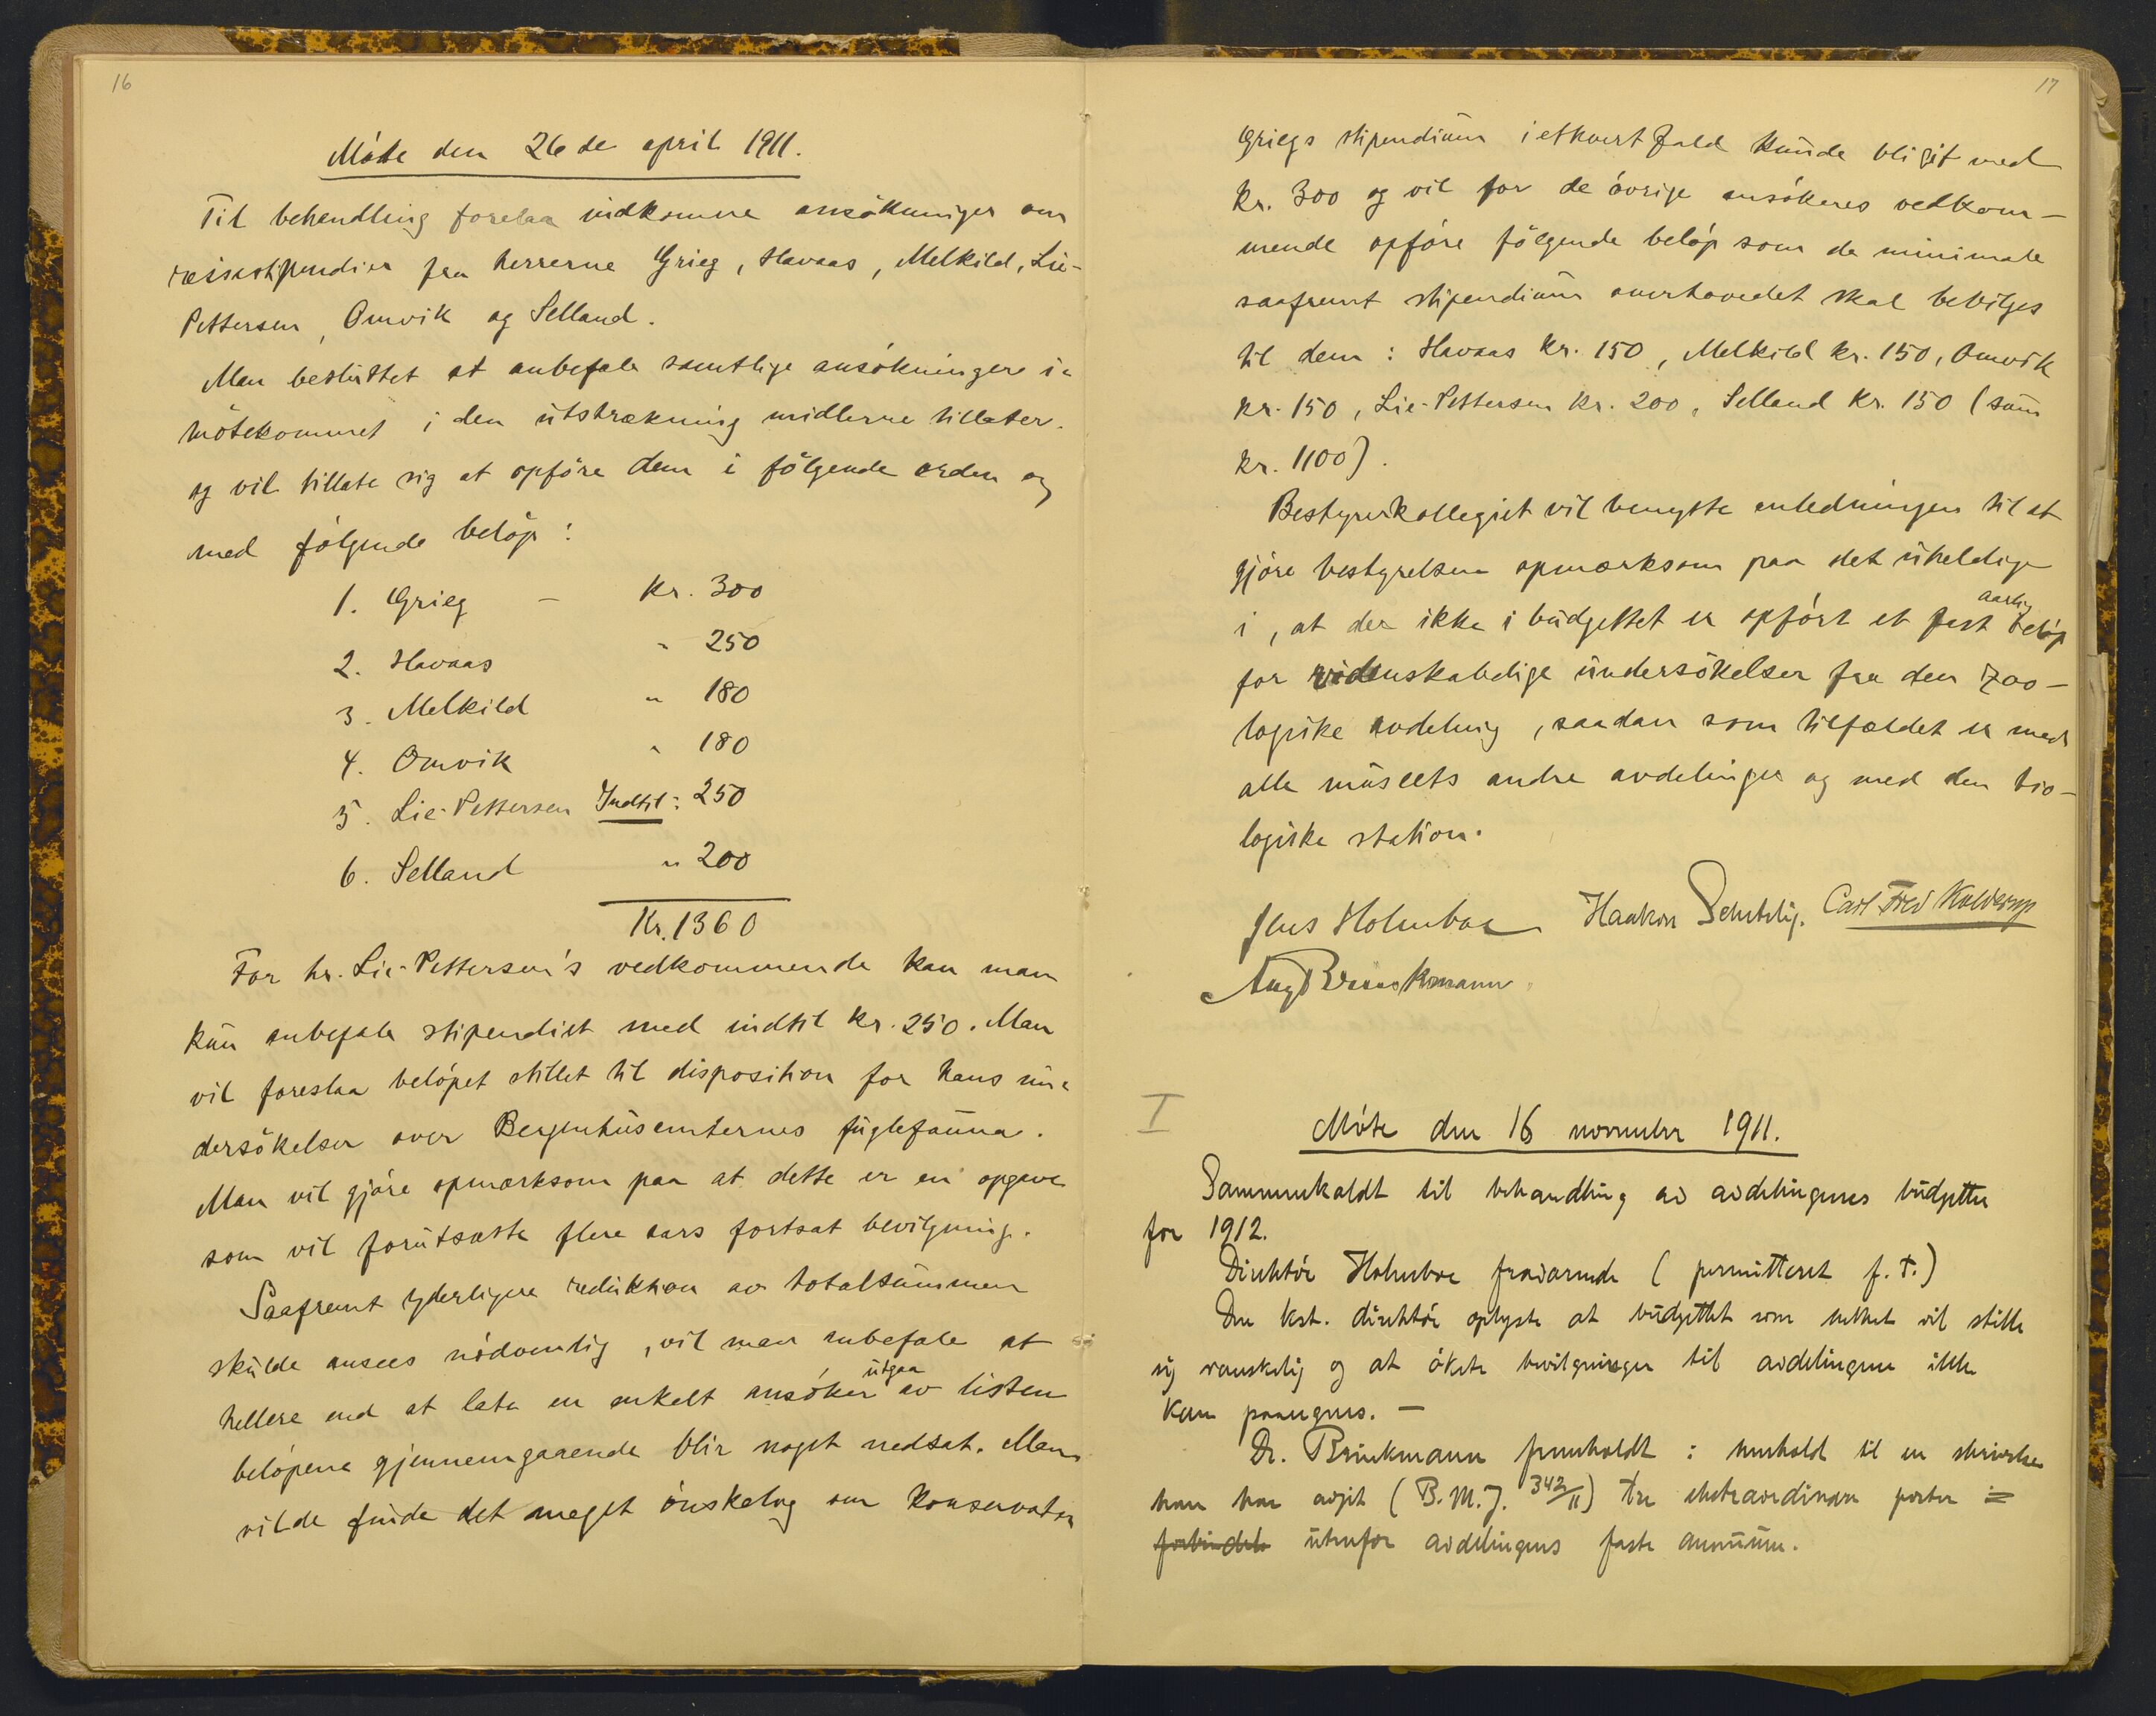 16
Møte den 26de april 1911.
Til behandling forelaa indkomne ansøkninger om
reisestipendier fra herrerne Grieg, Havaas, Melkild, Lie-
Pettersen, Omvik og Selland.
Man besluttet at anbefale samtlige ansøkninger i-
møtekommet i den utstrækning midlerne tillater.
og vil tillate sig at opføre dem i følgende orden og
med følgende beløp:
1. Grieg – kr. 300
2. Havaas " 250
3. Melkild " 180
4. Omvik " 180
5. Lie-Pettersen Indtil: 250
6. Selland " 200
Kr. 1360
For hr. Lie-Pettersen's vedkommende kan man
kun anbefale stipendiet med indtil kr. 250. Man
vil foreslaa beløpet stillet til disposition for hans un-
dersøkelser over Bergenhusamternes fuglefauna.
Man vil gjøre opmærksom paa at dette er en opgave
som vil forutsætte flere aars fortsat bevilgning.
Saafremt yderligere reduktion av totalsummen
skulde ansees nødvendig, vil man anbefale at
hellere end at lata en enkelt ansøker utgaa av listen
beløpene gjennemgaaende blir noget nedsat. Man
vilde finde det meget ønskelig om konservator
17
Griegs stipendium i ethvert fald kunde bli git med
kr. 300 og vil for de øvrige ansøkeres vedkom-
mende opføre følgende beløp som de minimale
saafremt stipendium overhovedet skal bevilges
til dem: Havaas kr. 150, Melkild kr. 150, Omvik
kr. 150, Lie-Pettersen kr. 200, Selland kr. 150 (sum
kr. 1100).
Bestyrerkollegiet vil benytte anledningen til at
gjøre bestyrelsen opmærksom paa det uheldige
i, at der ikke i budgettet er opført et fast aarlig beløp
for videnskabelige undersøkelser fra den zoo-
logiske avdeling, saadan som tilfældet er med
alle museets andre avdelinger og med den bio-
logiske station.
Jens Holmboe Haakon Schetelig. Carl Fred Kolderup
Aug Brinkmann.
I
Møte den 16 november 1911.
Sammenkaldt til behandling av avdelingenes budgetter
for 1912.
Direktør Holmboe fraværende (permitteret f. t.)
Den kst. direktør oplyste at budgettet som helhet vil stille
sig vanskelig og at økete bevilgninger til avdelingene ikke
kan paaregnes. –
Dr. Brinkmann fremholdt i henhold til en skrivelse
han har avgit (B.M.J. 342/11) tre ekstraordinære poster i
forbindels utenfor avdelingens faste annuum.